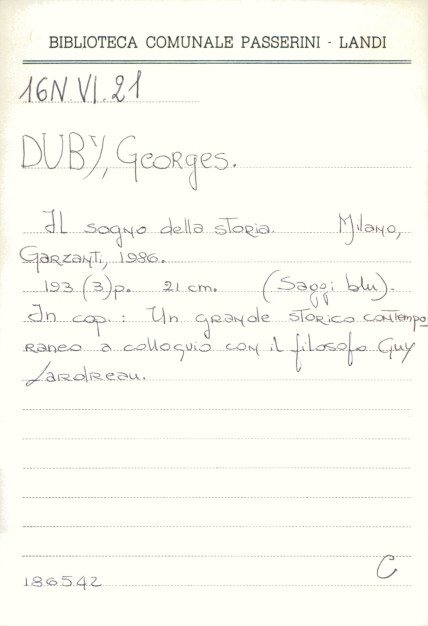 BIBLIOTECA COMUNALE PASSERINI - LANDI
16N.VI.21
DUBY, Georges.
Il sogno della storia. Milano,
Garzanti, 1986.
193 (3) p. 21 cm. (Saggi blu).
In cop.: Un grande storico contempo
raneo a colloquio con il filosofo Guy
Lardreau.
C
186542